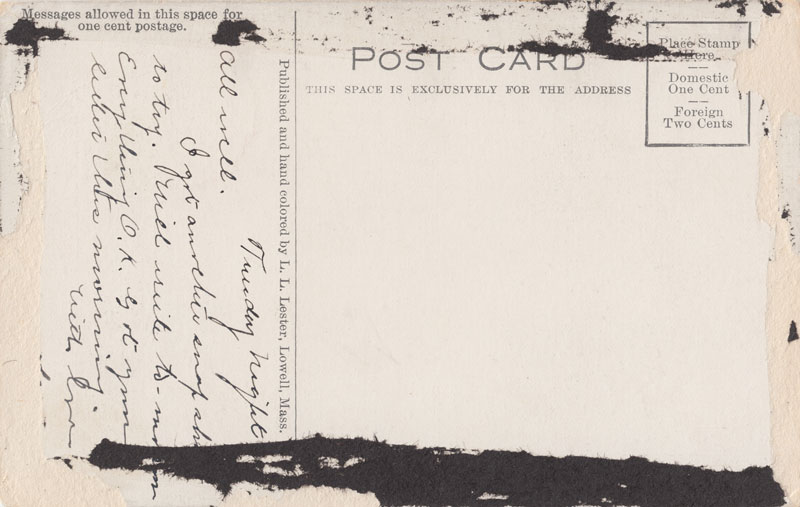 Messages allowed in this space for
one cent postage.
POST CARD
THIS SPACE IS EXCLUSIVELY FOR THE ADDRESS
Place Stamp
Here
Domestic
One Cent
Foreign
Two Cents
Published and hand colored by L. L. Lester, Lowell, Mass.
Tuesday Night
All well.
I got another snap
to try. Will write to-
Everything O.K. Got your
letter this morning.
with love